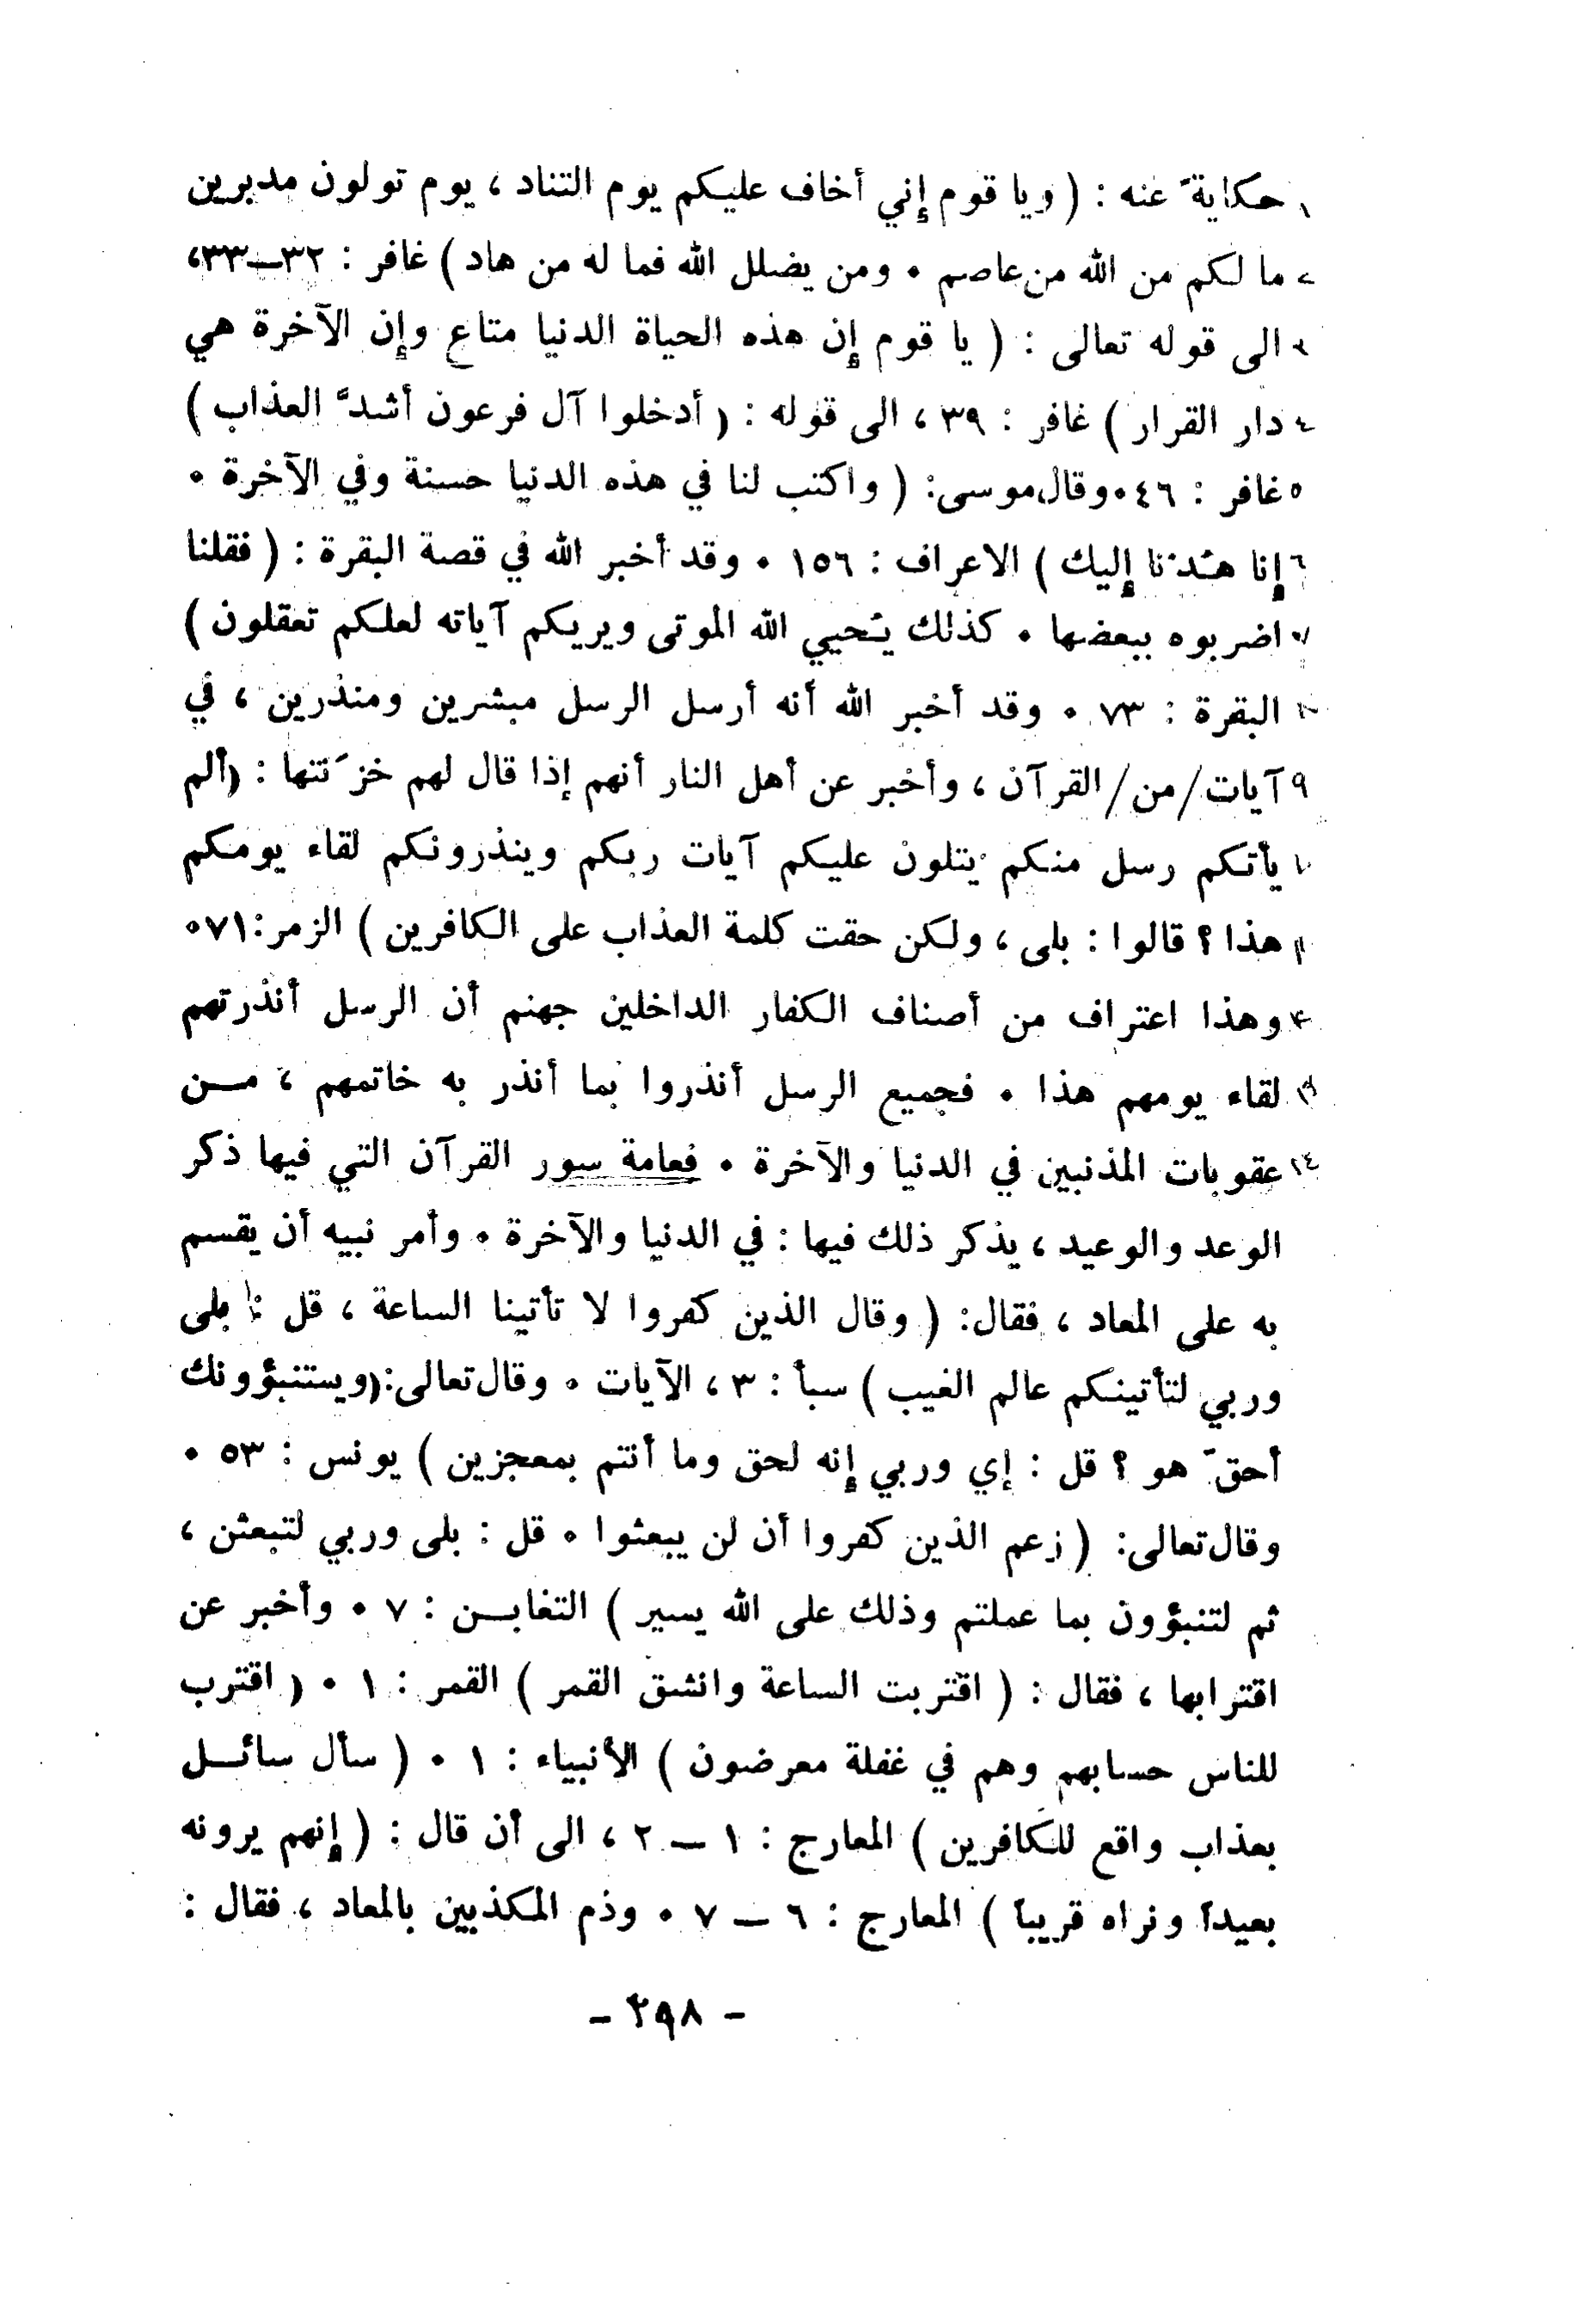 ١ حكايةً عنه : ( ويا قوم إني أخاف عليكم يوم التناد ، يوم تولون مدبرين
٢ ما لكم من الله من عاصم ٠ ومن يضلل الله فما له من هاد ) غافر : ٣٢–٣٣،
٣ الى قوله تعالى : ( يا قوم إن هذه الحياة الدنيا متاع وإن الآخرة هي
٤ دار القرار ) غافر : ٣٩ ، الى قوله : ( أدخلوا آل فرعون أشدَّ العذاب )
٥ غافر : ٤٦ ٠ وقال موسى: ( واكتب لنا في هذه الدنيا حسنة وفي الآخرة ٠
٦ إنا هُدْنا إليك ) الاعراف : ١٥٦ ٠ وقد أخبر الله في قصة البقرة : ( فقلنا
٧ اضربوه ببعضها ٠ كذلك يُحيي الله الموتى ويريكم آياته لعلكم تعقلون )
البقرة : ٧٣ ٠ وقد أخبر الله أنه أرسل الرسل مبشرين ومنذرين ، في
٩ آيات/من/القرآن ، وأخبر عن أهل النار أنهم إذا قال لهم خزَنتها : (ألم
١٠ يأتكم رسل منكم يتلون عليكم آيات ربكم وينذرونكم لقاء يومكم
١١ هذا ؟ قالوا : بلى ، ولكن حقت كلمة العذاب على الكافرين ) الزمر:٧١ ٠
١٢ وهذا اعتراف من أصناف الكفار الداخلين جهنم أن الرسل أنذرتهم
١٣ لقاء يومهم هذا ٠ فجميع الرسل أنذروا بما أنذر به خاتمهم ، مــن
١٤ عقوبات المذنبين في الدنيا والآخرة ٠ فعامة سور القرآن التي فيها ذكر
الوعد والوعيد ، يذكر ذلك فيها : في الدنيا والآخرة ٠ وأمر نبيه أن يقسم
به على المعاد ، فقال: ( وقال الذين كفروا لا تأتينا الساعة ، قل : بلى
وربي لتأتينكم عالم الغيب ) سبأ : ٣ ، الآيات ٠ وقال تعالى:(ويستنبؤونك
أحقّ هو ؟ قل : إي وربي إنه لحق وما أنتم بمعجزين ) يونس : ٥٣ ٠
وقال تعالى: ( زعم الذين كفروا أن لن يبعثوا ٠ قل : بلى وربي لتبعثن ،
ثم لتنبؤون بما عملتم وذلك على الله يسير ) التغابــن : ٧ ٠ وأخبر عن
اقترابها ، فقال : ( اقتربت الساعة وانشق القمر ) القمر : ١ ٠ ( اقترب
للناس حسابهم وهم في غفلة معرضون ) الأنبياء : ١ ٠ ( سأل سائــل
بعذاب واقع للكافرين ) المعارج : ١ – ٢ ، الى أن قال : ( إنهم يرونه
بعيداً ونراه قريباً ) المعارج : ٦ – ٧ ٠ وذم المكذبين بالمعاد ، فقال :
- ٣٩٨ -